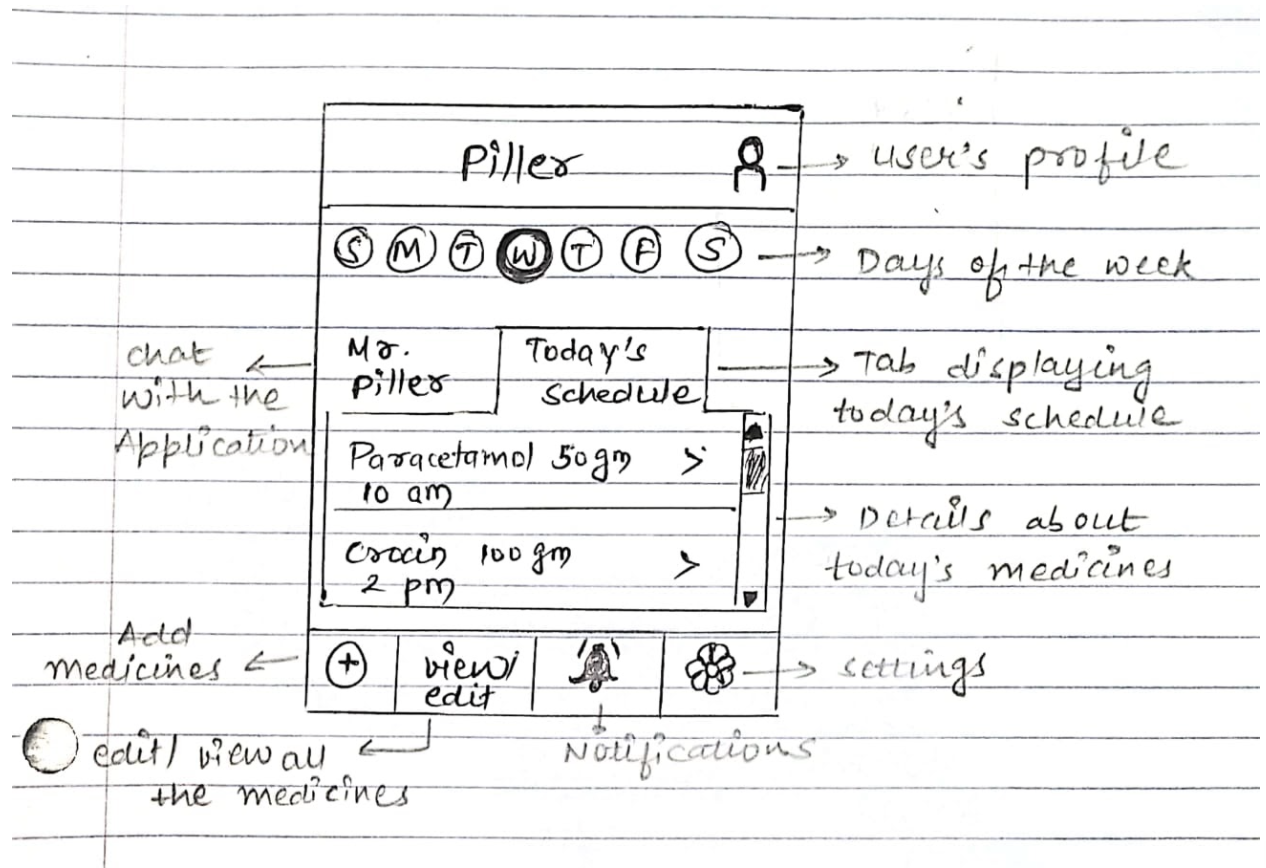 Piller
→ user's profile
S M T W T F S → Days of the week
chat
with the
Application
Mr.
Piller
Today's
schedule
→ Tab displaying
today's schedule
Paracetamol 50gm >
10 am
Crocin 100 gm >
2 pm
→ Details about
today's medicines
Add
medicines ←
+
view/
edit
→ settings
edit/ view all
the medicines
Notifications